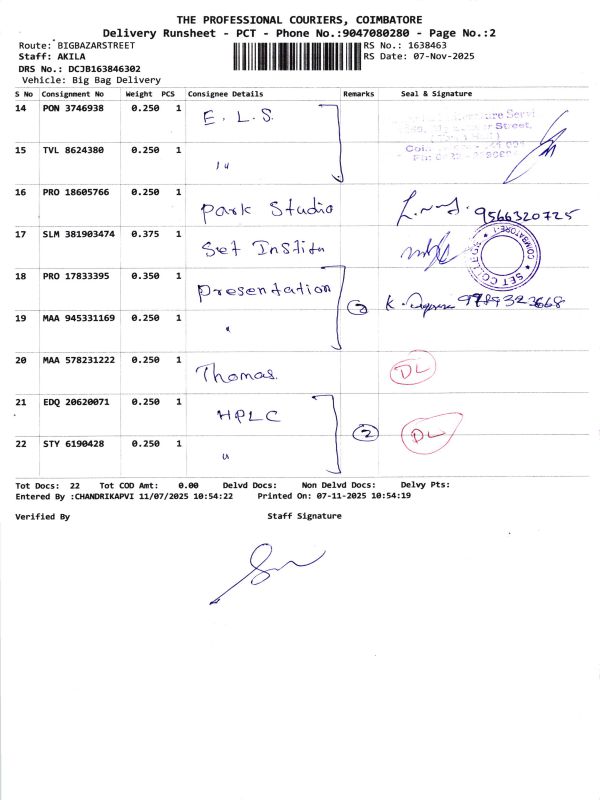 THE PROFESSIONAL COURIERS, COIMBATORE
Delivery Runsheet - PCT - Phone No.:9047080280 - Page No.:2
Route: BIGBAZARSTREET RS No.: 1638463
Staff: AKILA RS Date: 07-Nov-2025
DRS No.: DCJB163846302
Vehicle: Big Bag Delivery
S No Consignment No Weight PCS Consignee Details Remarks Seal & Signature
14 PON 3746938 0.250 1 E. L. S.
15 TVL 8624380 0.250 1 "
16 PRO 18605766 0.250 1 Park Studio 9566320725
17 SLM 381903474 0.375 1 Set Institu SET COLLE COIMBATORE-1
18 PRO 17833395 0.350 1 Presentation K. 9789323668
19 MAA 945331169 0.250 1 "
20 MAA 578231222 0.250 1 Thomas. DL
21 EDQ 20620071 0.250 1 HPLC 2 DL
22 STY 6190428 0.250 1 "
Tot Docs: 22 Tot COD Amt: 0.00 Delvd Docs: Non Delvd Docs: Delvy Pts:
Entered By :CHANDRIKAPVI 11/07/2025 10:54:22 Printed On: 07-11-2025 10:54:19
Verified By Staff Signature